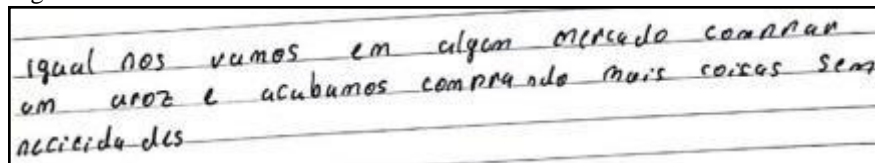 igual nos vamos em algum mercado comprar
um aroz e acabamos comprando mais coisas sem
necicidades